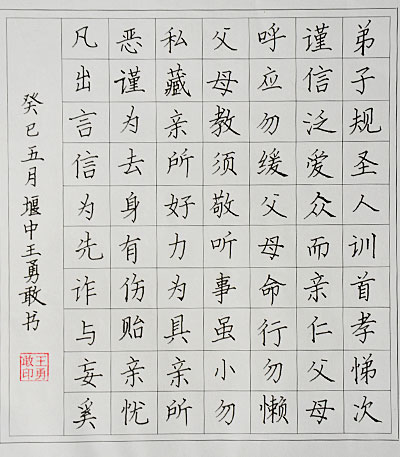 弟子规圣人训首孝悌次
谨信泛爱众而亲仁父母
呼应勿缓父母命行勿懒
父母教须敬听事虽小勿
私藏亲所好力为具亲所
恶谨为去身有伤贻亲忧
凡出言信为先诈与妄奚
癸巳五月堰中王勇敢书
王勇敢印